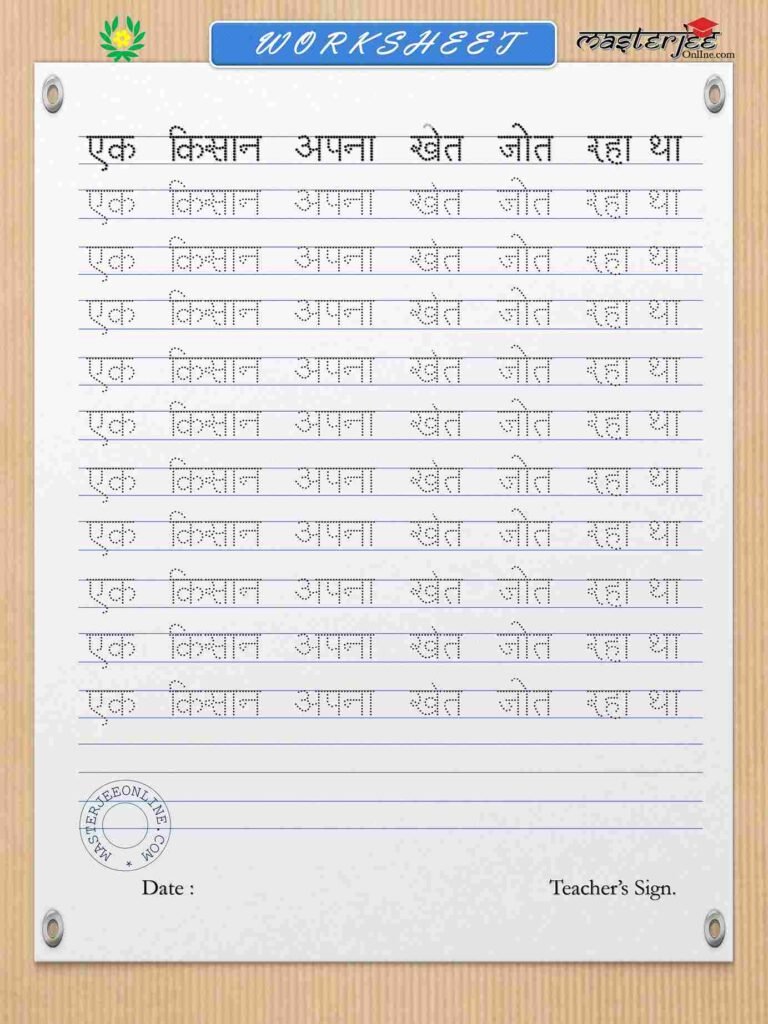 WORKSHEET
masterjee
Online.com
एक किसान अपना खेत जोत रहा था
एक किसान अपना खेत जोत रहा था
एक किसान अपना खेत जोत रहा था
एक किसान अपना खेत जोत रहा था
एक किसान अपना खेत जोत रहा था
एक किसान अपना खेत जोत रहा था
एक किसान अपना खेत जोत रहा था
एक किसान अपना खेत जोत रहा था
एक किसान अपना खेत जोत रहा था
एक किसान अपना खेत जोत रहा था
एक किसान अपना खेत जोत रहा था
MASTERJEEONLINE.COM *
Date :
Teacher’s Sign.